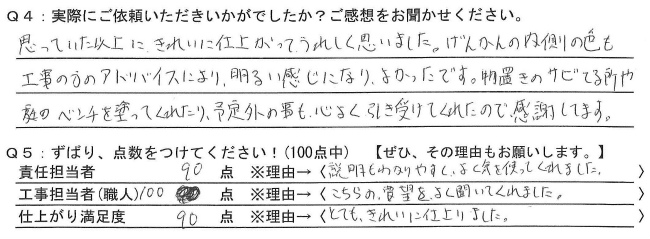 Q4:実際にご依頼いただきいかがでしたか?ご感想をお聞かせください。
思っていた以上に、きれいに仕上がってうれしく思いました。げんかんの内側の色も
工事の方のアドバイスにより、明るい感じになり、よかったです。物置きのサビてる所や
庭のベンチを塗ってくれたり、予定外の事も、心よく引き受けてくれたので、感謝してます。
Q5:ずばり、点数をつけてください!(100点中) 【ぜひ、その理由もお願いします。】
責任担当者 90 点 ※理由→〈説明もわかりやすく、よく気を使ってくれました。〉
工事担当者(職人)100 点 ※理由→〈こちらの、要望を、よく聞いてくれました。〉
仕上がり満足度 90 点 ※理由→〈とても、きれいに仕上りました。〉